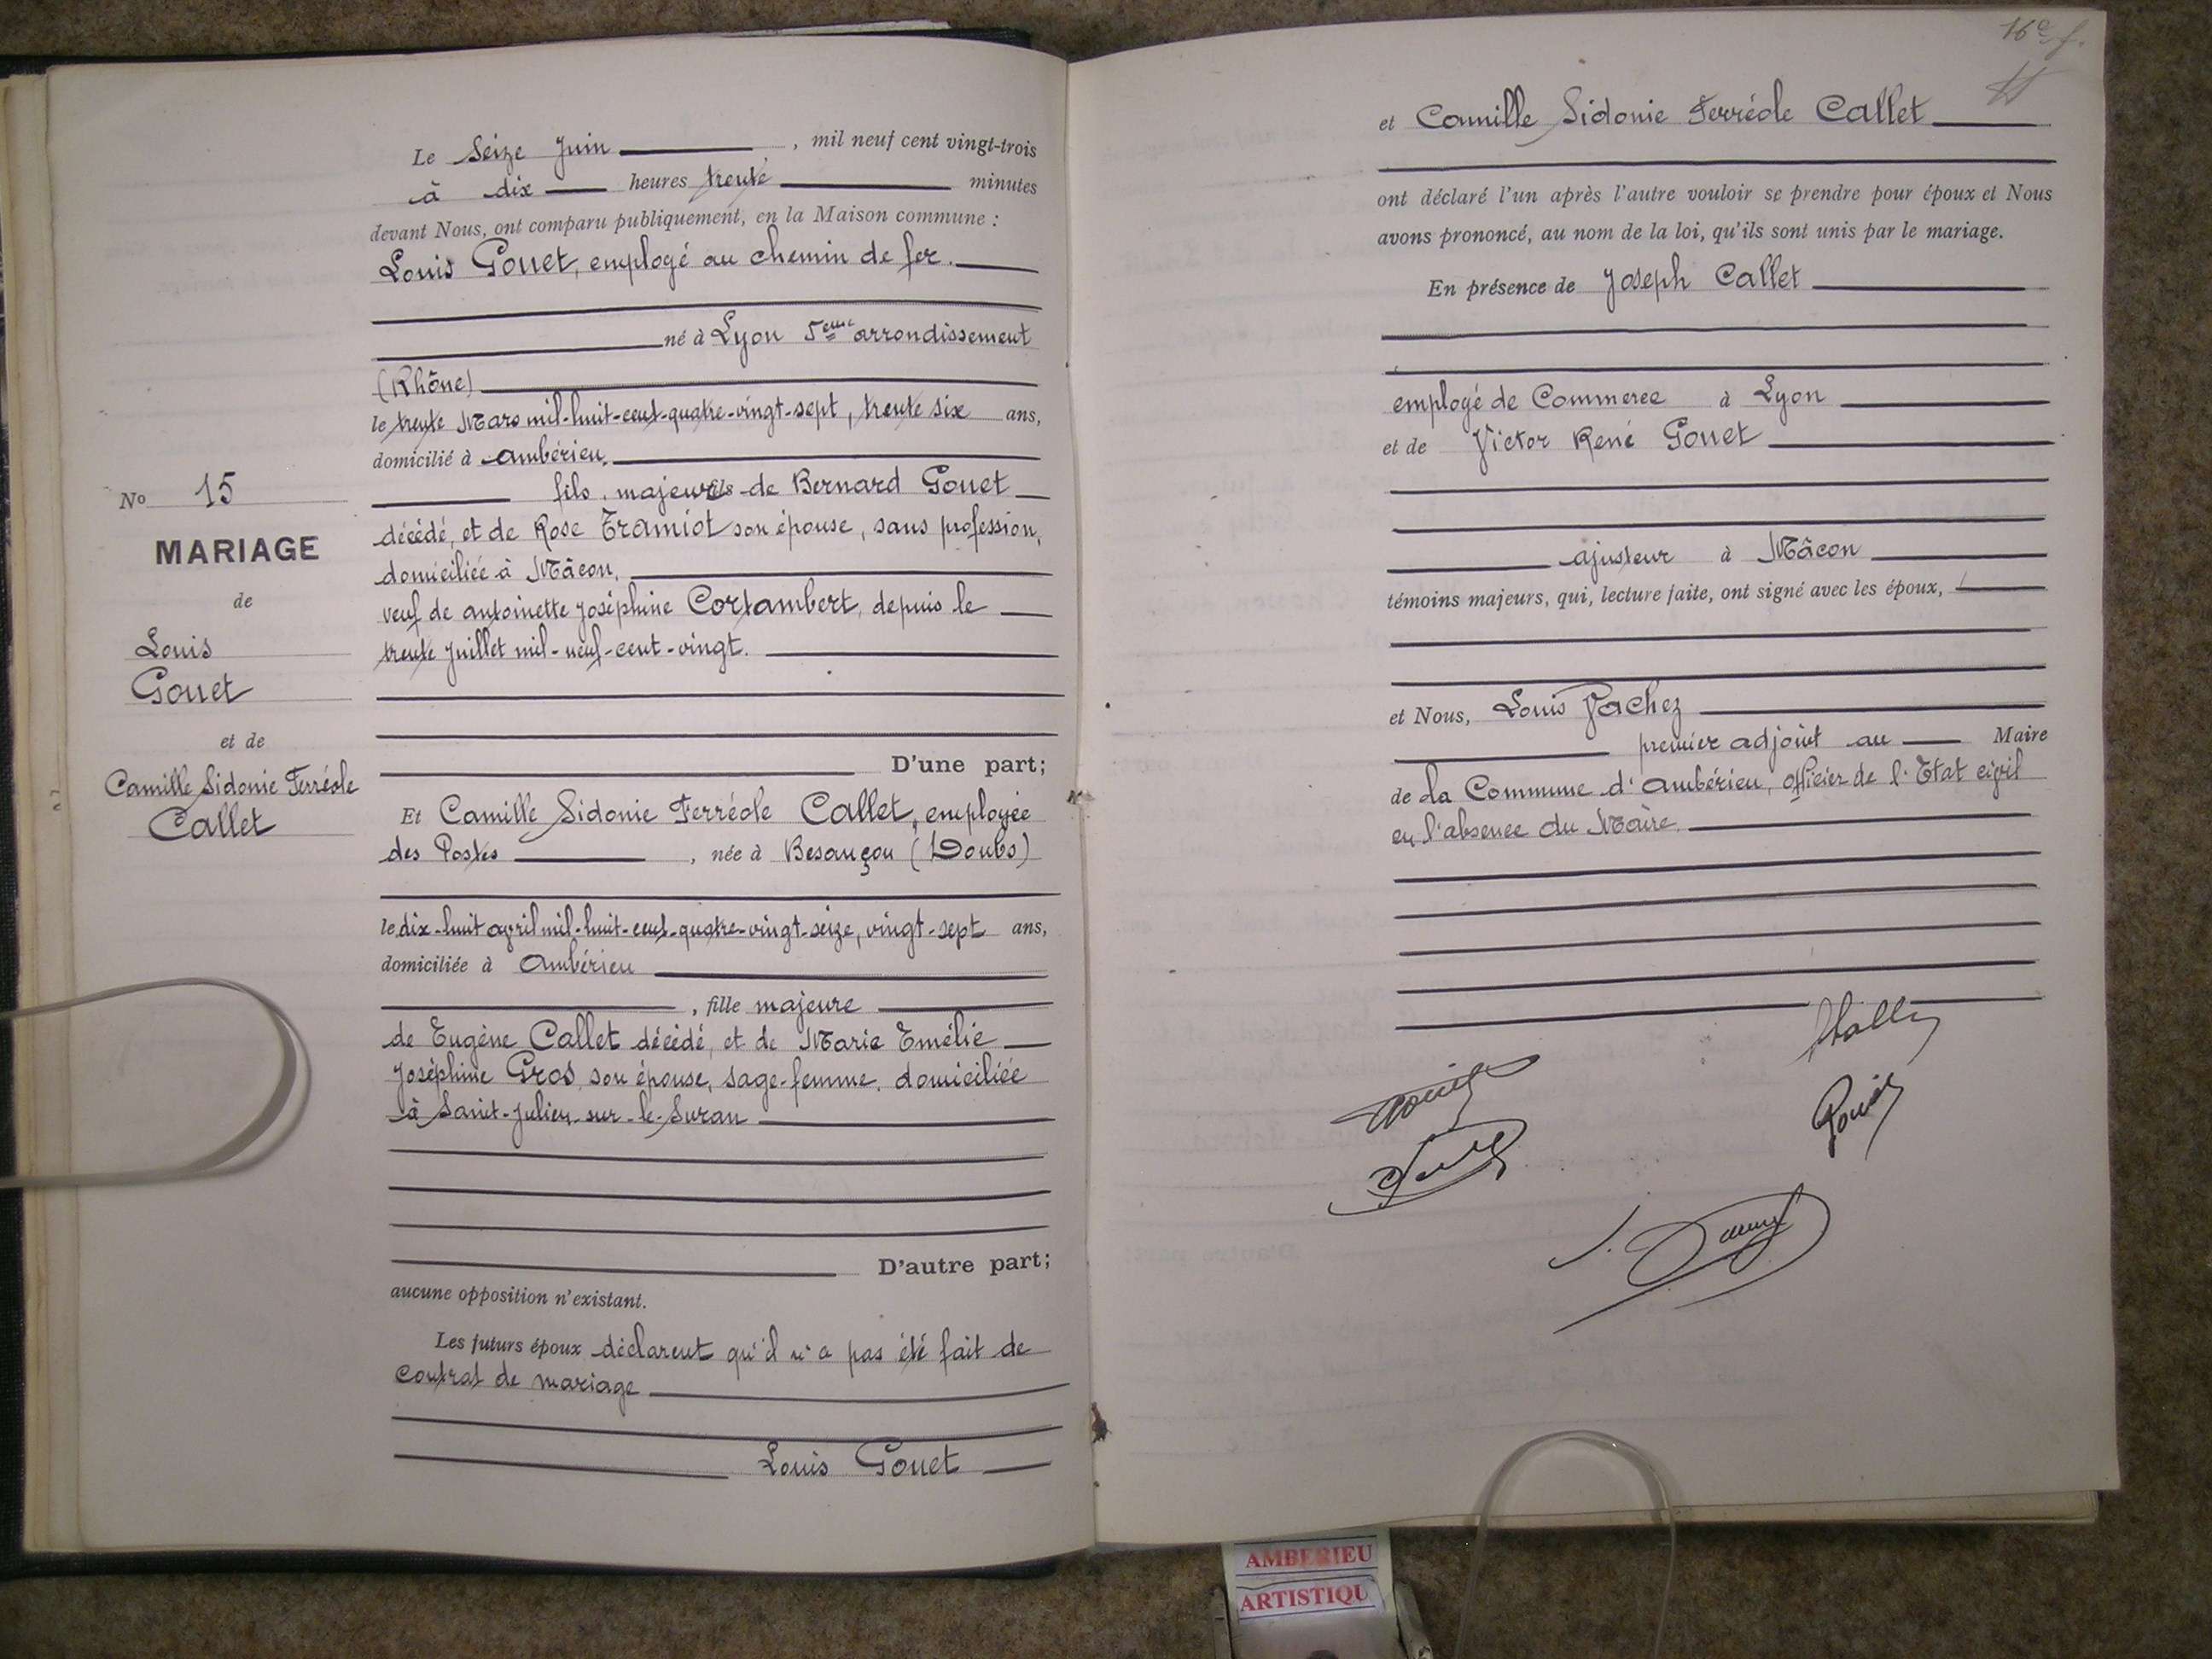 No 15
MARIAGE
de
Louis
Gouet
et de
Camille Sidonie Ferréole
Callet
Le Seize Juin, mil neuf cent vingt-trois
à dix heures trente minutes
devant Nous, ont comparu publiquement, en la Maison commune :
Louis Gouet, employé au chemin de fer.
né à Lyon 5eme arrondissement
(Rhône)
le trente Mars mil-huit-cent-quatre-vingt-sept, trente six ans,
domicilié à Ambérieu,
fils majeur de Bernard Gouet
décédé, et de Rose Tramiot son épouse, sans profession,
domiciliée à Mâcon,
veuf de Antoinette Joséphine Cortambert, depuis le
trente Juillet mil-neuf-cent-vingt.
D'une part;
Et Camille Sidonie Ferréole Callet, employée
des Postes, née à Besançon (Doubs)
le dix-huit avril mil-huit-cent-quatre-vingt-seize, vingt-sept ans,
domiciliée à Ambérieu
, fille majeure
de Eugène Callet décédé, et de Marie Emélie
Joséphine Gros, son épouse, sage-femme, domiciliée
à Saint-Julien-sur-le-Suran
D'autre part;
aucune opposition n'existant.
Les futurs époux déclarent qu'il n'a pas été fait de
contrat de mariage
Louis Gouet
16e f.
et Camille Sidonie Ferréole Callet
ont déclaré l'un après l'autre vouloir se prendre pour époux et Nous
avons prononcé, au nom de la loi, qu'ils sont unis par le mariage.
En présence de Joseph Callet
employé de Commerce à Lyon
et de Victor René Gouet
ajusteur à Mâcon
témoins majeurs, qui, lecture faite, ont signé avec les époux,
et Nous, Louis Vachez
premier adjoint au Maire
de La Commune d'Ambérieu, officier de l'Etat civil
en l'absence du Maire.
AMBERIEU
ARTISTIQU